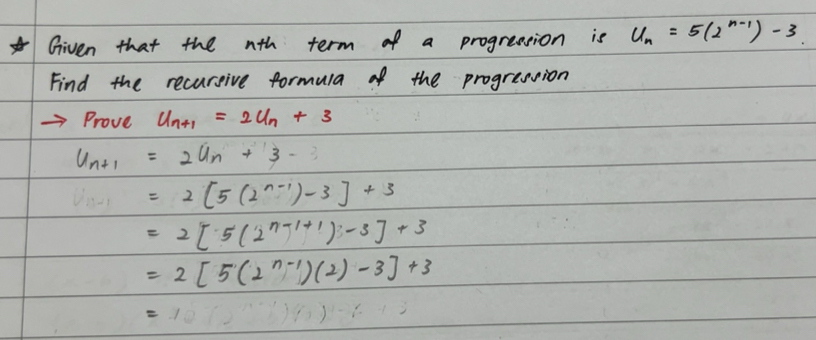 ☆ Given that the nth term of a progression is Uₙ = 5(2ⁿ⁻¹) - 3.
Find the recursive formula of the progression
→ Prove Uₙ₊₁ = 2Uₙ + 3
Uₙ₊₁ = 2Uₙ + 3
= 2[5(2ⁿ⁻¹)-3] + 3
= 2[5(2ⁿ⁻¹⁺¹)-3] + 3
= 2[5(2ⁿ⁻¹)(2) - 3] + 3
=